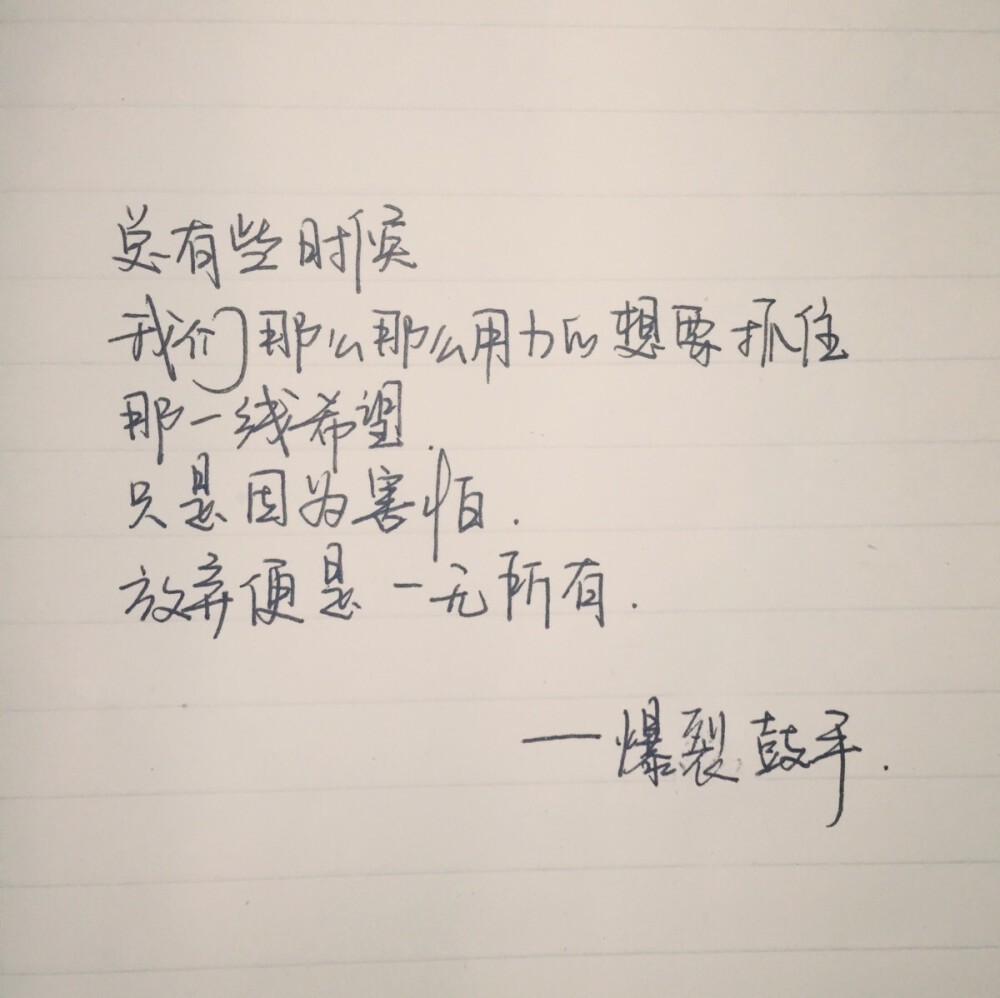 总有些时候
我们那么那么用力的想要抓住
那一线希望.
只是因为害怕.
放弃便是一无所有.
——爆裂鼓手.